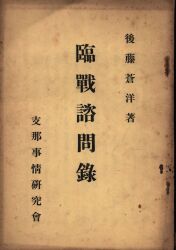 後藤蒼洋著
臨戰諮問錄
支那事情研究會